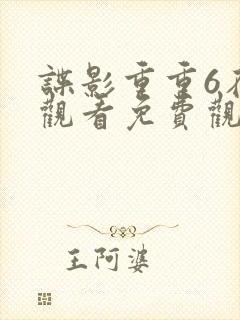 諜影重重6
觀看免費觀
王阿婆